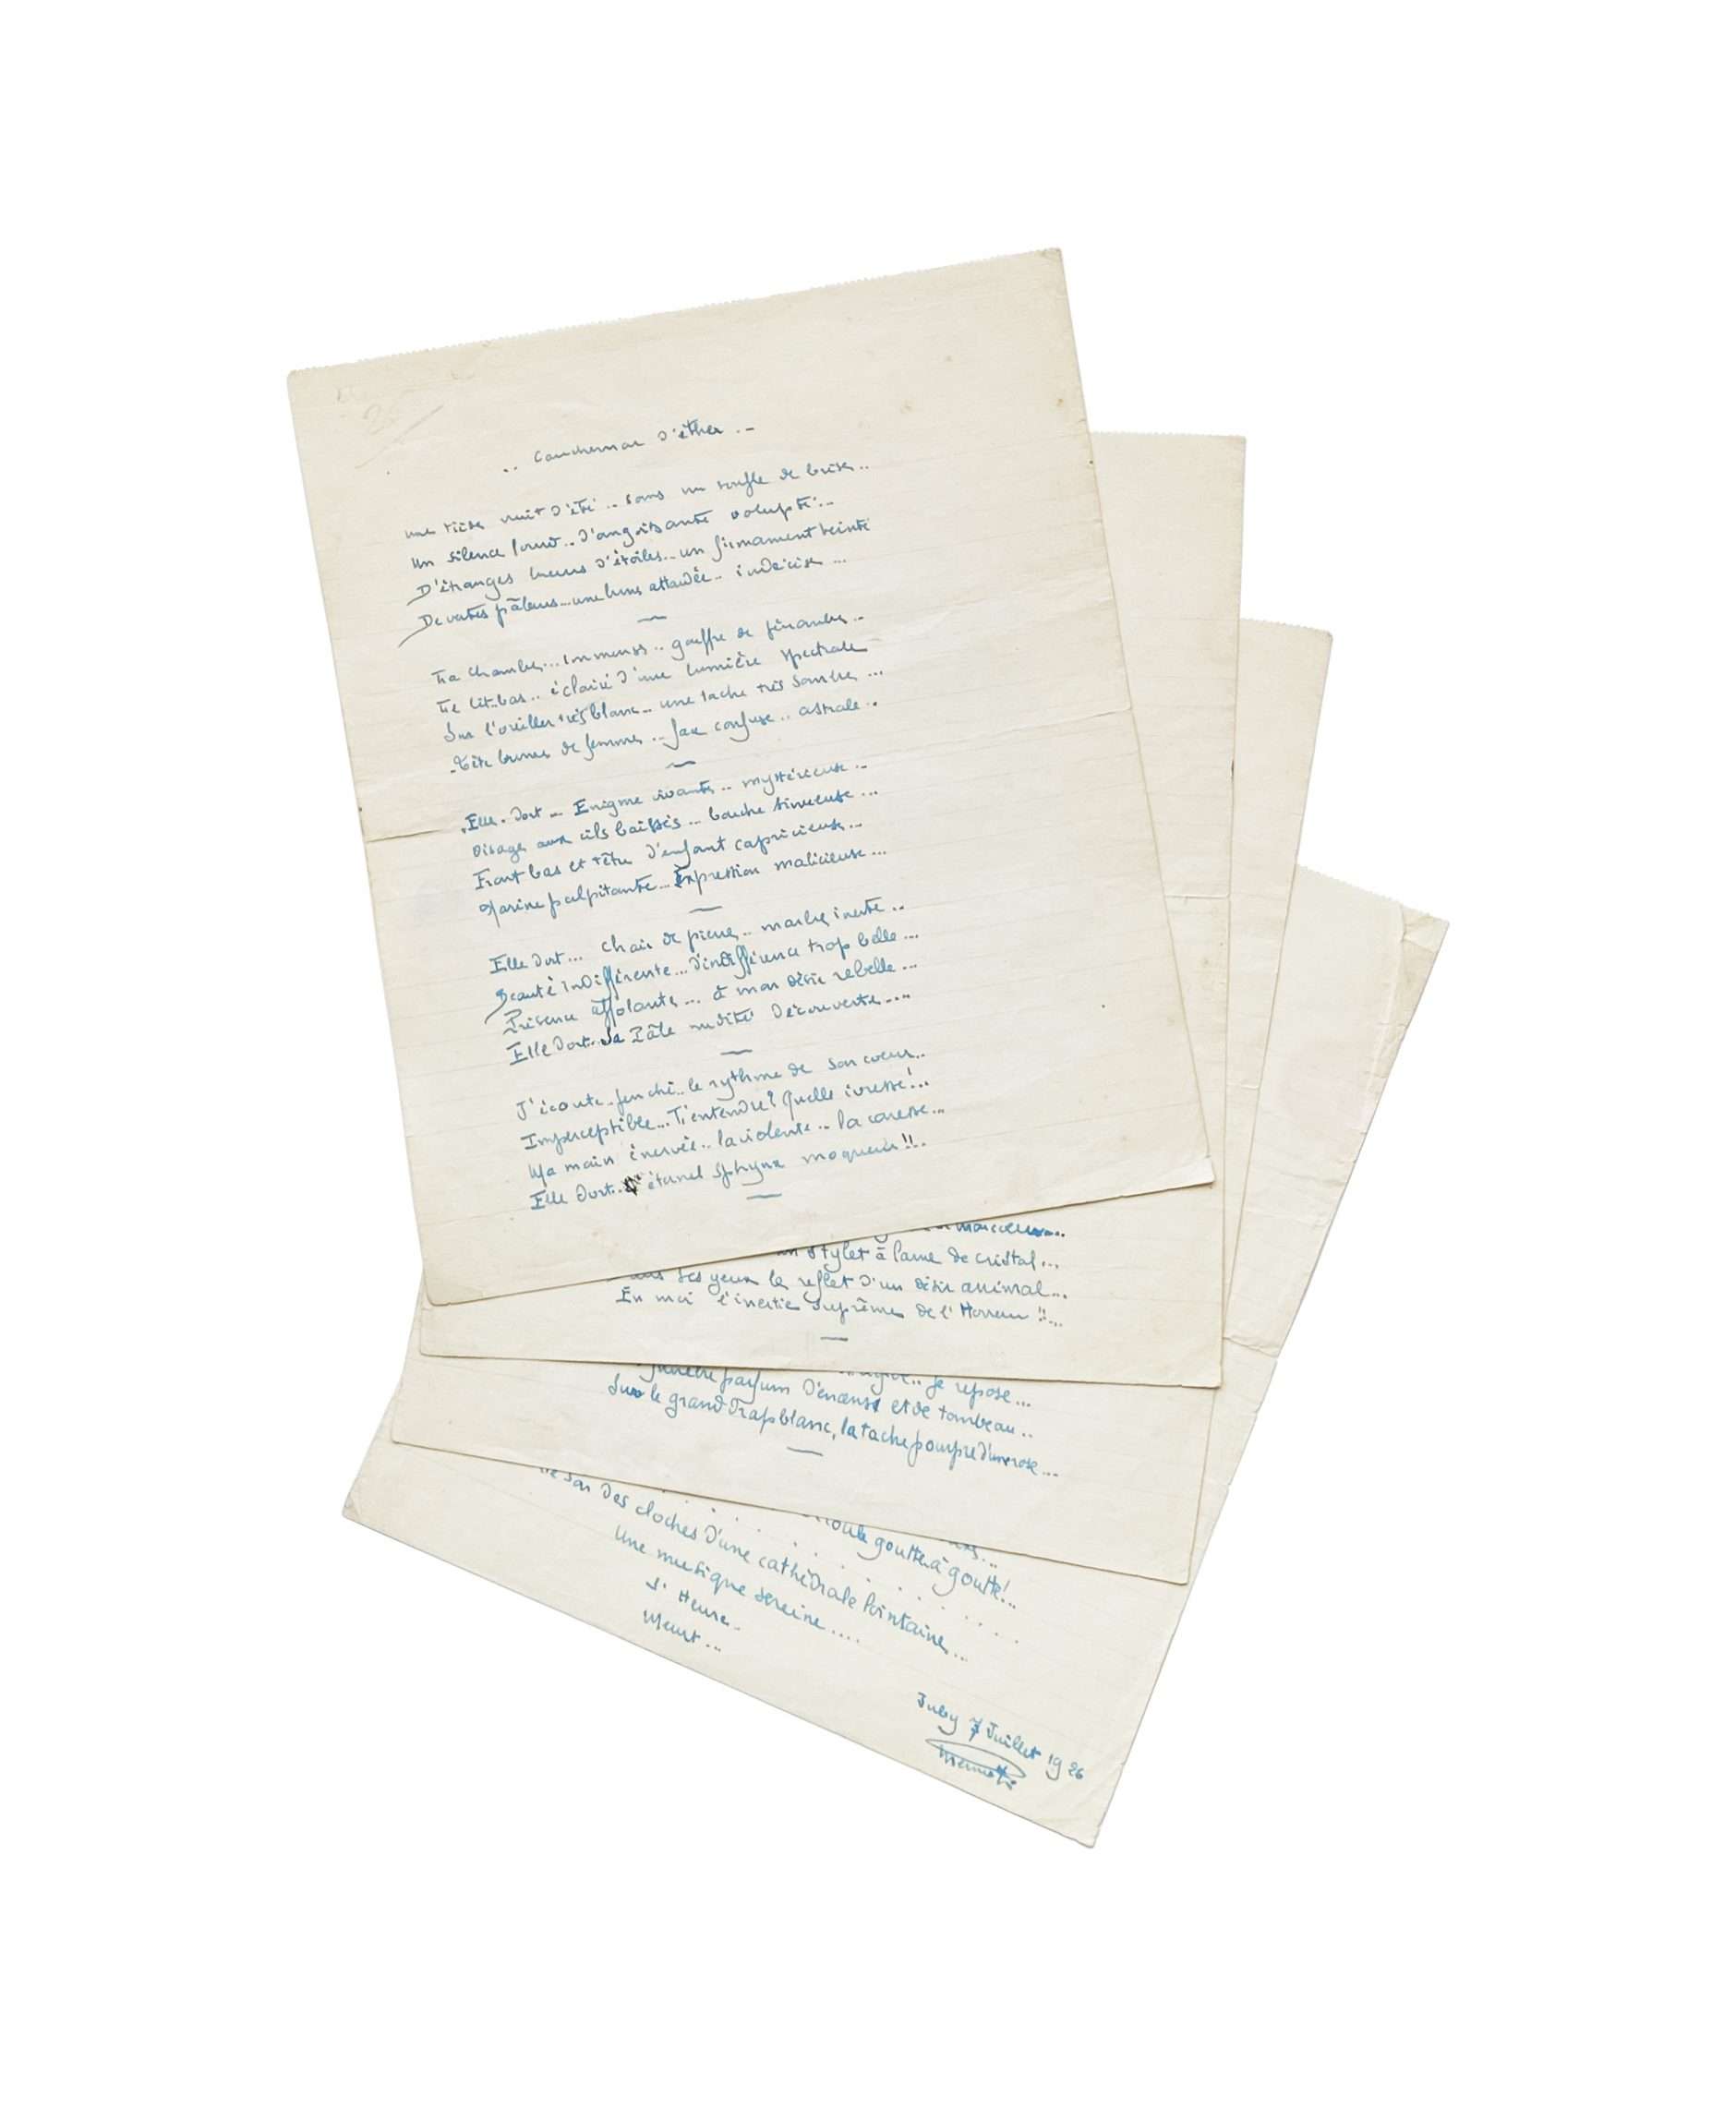 .. Cauchemar d'éther .-
Une tiède nuit d'été .. sans un souffle de brise ..
Un silence lourd .. d'angoissante volupté ..
D'étranges lueurs d'étoiles .. un firmament teinté
De vertes pâleurs ... une lune attardée .. indécise ...
La chambre ... immense .. gouffre de pénombre ..
Le lit bas .. éclairé d'une lumière spectrale
Sur l'oreiller très blanc .. une tache très sombre ...
Tête brune de femme .. face confuse .. astrale ..
Elle dort ... Enigme vivante .. mystérieuse ..
Visage aux cils baissés ... bouche sinueuse ...
Front bas et têtu d'enfant capricieuse ...
Narine palpitante ... Expression malicieuse ...
Elle dort ... Chair de pierre .. marbre inerte ..
Beauté indifférente ... d'indifférence trop belle ...
Présence affolante ... à mon désir rebelle ...
Elle dort .. Sa Pâle nudité découverte ....
J'écoute .. penché .. le rythme de son cœur ..
Imperceptible ... L'entendre? Quelle ivresse! ..
Ma main énervée .. la violente .. la caresse ...
Elle dort .. L'éternel sphynx moqueur!! ..
stylet à lame de cristal ...
ses yeux le reflet d'un désir animal ...
En moi l'inertie suprême de l'Horreur!! ...
je repose ...
parfum d'encens et de tombeau ..
Sur le grand drap blanc, la tache pourpre d'une rose ...
goutte à goutte! ...
. . . . . . . . . .
son des cloches d'une cathédrale lointaine ...
Une musique sereine ....
L'Heure ..
Meurt ...
Juby 7 Juillet 1926
Mermoz